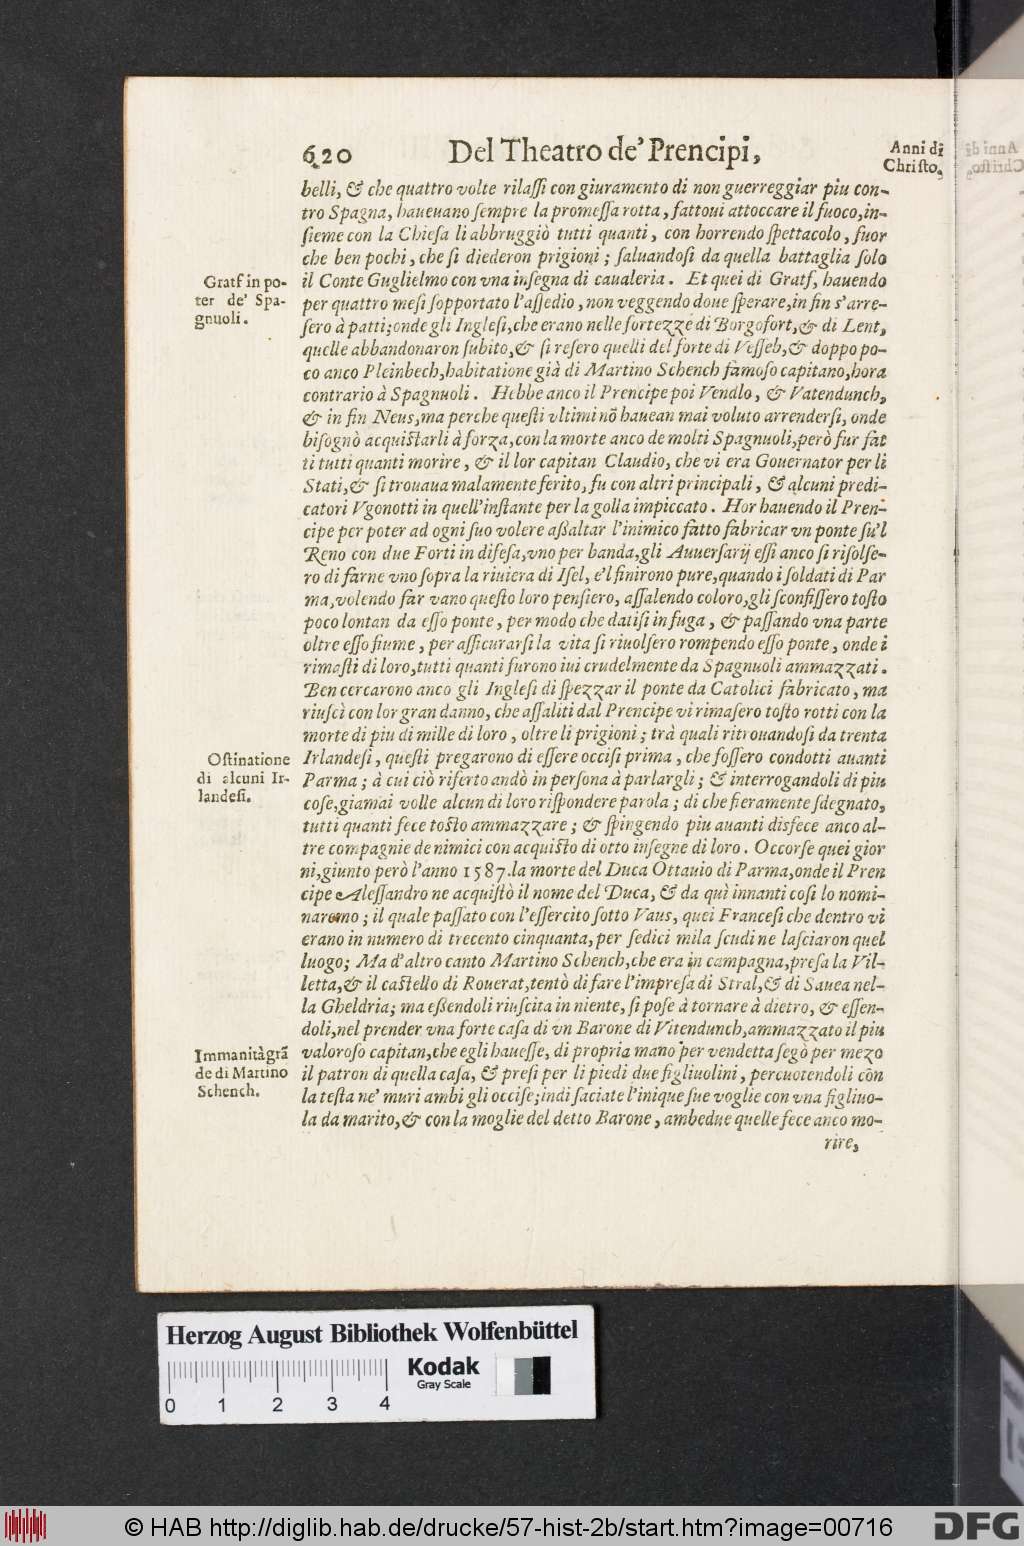 620 Del Theatro de' Prencipi,
Anni di
Christo,
belli, & che quattro volte rilaſſi con giuramento di non guerreggiar piu con-
tro Spagna, haueuano ſempre la promeſſa rotta, fattoui attoccare il fuoco, in-
ſieme con la Chieſa li abbruggiò tutti quanti, con horrendo ſpettacolo, fuor
che ben pochi, che ſi diederon prigioni; ſaluandoſi da quella battaglia ſolo
il Conte Guglielmo con vna inſegna di caualeria. Et quei di Gratſ, hauendo
per quattro meſi ſopportato l'aſſedio, non veggendo doue ſperare, in fin s'arre-
ſero à patti; onde gli Ingleſi, che erano nelle fortezze di Borgofort, & di Lent,
quelle abbandonaron ſubito, & ſi reſero quelli del forte di Veſſeb, & doppo po-
co anco Pleinbech, habitatione già di Martino Schench famoſo capitano, hora
contrario à Spagnuoli. Hebbe anco il Prencipe poi Vendlo, & Vatendunch,
& in fin Neus, ma perche queſti vltimi nõ hauean mai voluto arrenderſi, onde
biſognò acquiſtarli à forza, con la morte anco de molti Spagnuoli, però fur fat
ti tutti quanti morire, & il lor capitan Claudio, che vi era Gouernator per li
Stati, & ſi trouaua malamente ferito, fu con altri principali, & alcuni predi-
catori Vgonotti in quell'inſtante per la golla impiccato. Hor hauendo il Pren-
cipe per poter ad ogni ſuo volere aßaltar l'inimico fatto fabricar vn ponte ſu'l
Reno con due Forti in difeſa, vno per banda, gli Auuerſarij eſſi anco ſi riſolſe-
ro di farne vno ſopra la riuiera di Iſel, e'l finirono pure, quando i ſoldati di Par
ma, volendo far vano queſto loro penſiero, aſſalendo coloro, gli ſconfiſſero toſto
poco lontan da eſſo ponte, per modo che datiſi in fuga, & paſſando vna parte
oltre eſſo fiume, per aſſicurarſi la vita ſi riuolſero rompendo eſſo ponte, onde i
rimaſti di loro, tutti quanti furono iui crudelmente da Spagnuoli ammazzati.
Ben cercarono anco gli Ingleſi di ſpezzar il ponte da Catolici fabricato, ma
riuſcì con lor gran danno, che aſſaliti dal Prencipe vi rimaſero toſto rotti con la
morte di piu di mille di loro, oltre li prigioni; trà quali ritrouandoſi da trenta
Irlandeſi, queſti pregarono di eſſere occiſi prima, che foſſero condotti auanti
Parma; à cui ciò riferto andò in perſona à parlargli; & interrogandoli di piu
coſe, giamai volle alcun di loro riſpondere parola; di che fieramente ſdegnato,
tutti quanti fece toſto ammazzare; & ſpingendo piu auanti disfece anco al-
tre compagnie de nimici con acquiſto di otto inſegne di loro. Occorſe quei gior
ni, giunto però l'anno 1587. la morte del Duca Ottauio di Parma, onde il Pren
cipe Aleſſandro ne acquiſtò il nome del Duca, & da quì innanti coſi lo nomi-
naremo; il quale paſſato con l'eſſercito ſotto Vaus, quei Franceſi che dentro vi
erano in numero di trecento cinquanta, per ſedici mila ſcudi ne laſciaron quel
luogo; Ma d'altro canto Martino Schench, che era in campagna, preſa la Vil-
letta, & il caſtello di Rouerat, tentò di fare l'impreſa di Stral, & di Sauea nel-
la Gheldria; ma eßendoli riuſcita in niente, ſi poſe à tornare à dietro, & eſſen-
doli, nel prender vna forte caſa di vn Barone di Vitendunch, ammazzato il piu
valoroſo capitan, che egli haueſſe, di propria mano per vendetta ſegò per mezo
il patron di quella caſa, & preſi per li piedi due figliuolini, percuotendoli con
la teſta ne' muri ambi gli occiſe; indi ſaciate l'inique ſue voglie con vna figliuo-
la da marito, & con la moglie del detto Barone, ambedue quelle fece anco mo-
rire,
Gratſ in po-
ter de' Spa-
gnuoli.
Oſtinatione
di alcuni Ir-
landeſi.
Immanità grã
de di Martino
Schench.
Herzog August Bibliothek Wolfenbüttel
Kodak
Gray Scale
0 1 2 3 4
© HAB http://diglib.hab.de/drucke/57-hist-2b/start.htm?image=00716
DFG